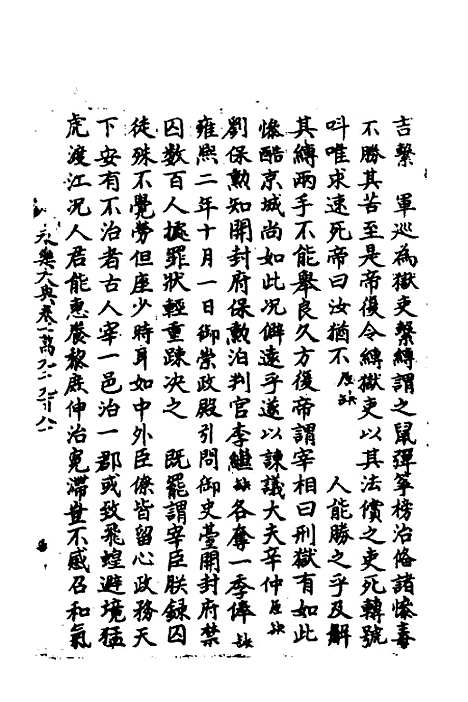 吉繫　軍巡為獄吏繫縛謂之鼠彈箏榜治備諸慘毒
不勝其苦至是帝復令縛獄吏以其法償之吏死轉號
呌唯求速死帝曰汝猶不原缺人能勝之乎及解
其縛兩手不能舉良久方復帝謂宰相曰刑獄有如此
慘酷京城尚如此况僻遠乎遂以諫議大夫辛仲原缺
劉保勲知開封府保勲洎判官李繼缺各奪一季俸缺
雍熙二年十月一日御崇政殿引問御史臺開封府禁
囚数百人據罪狀輕重踈决之　既罷謂宰臣朕録囚
徒殊不覺勞但座少時耳如中外臣僚皆留心政務天
下安有不治者古人宰一邑治一郡或致飛蝗避境猛
虎渡江况人君能惠養黎庻伸治寃滯豈不感召和氣
永樂大典卷一萬九